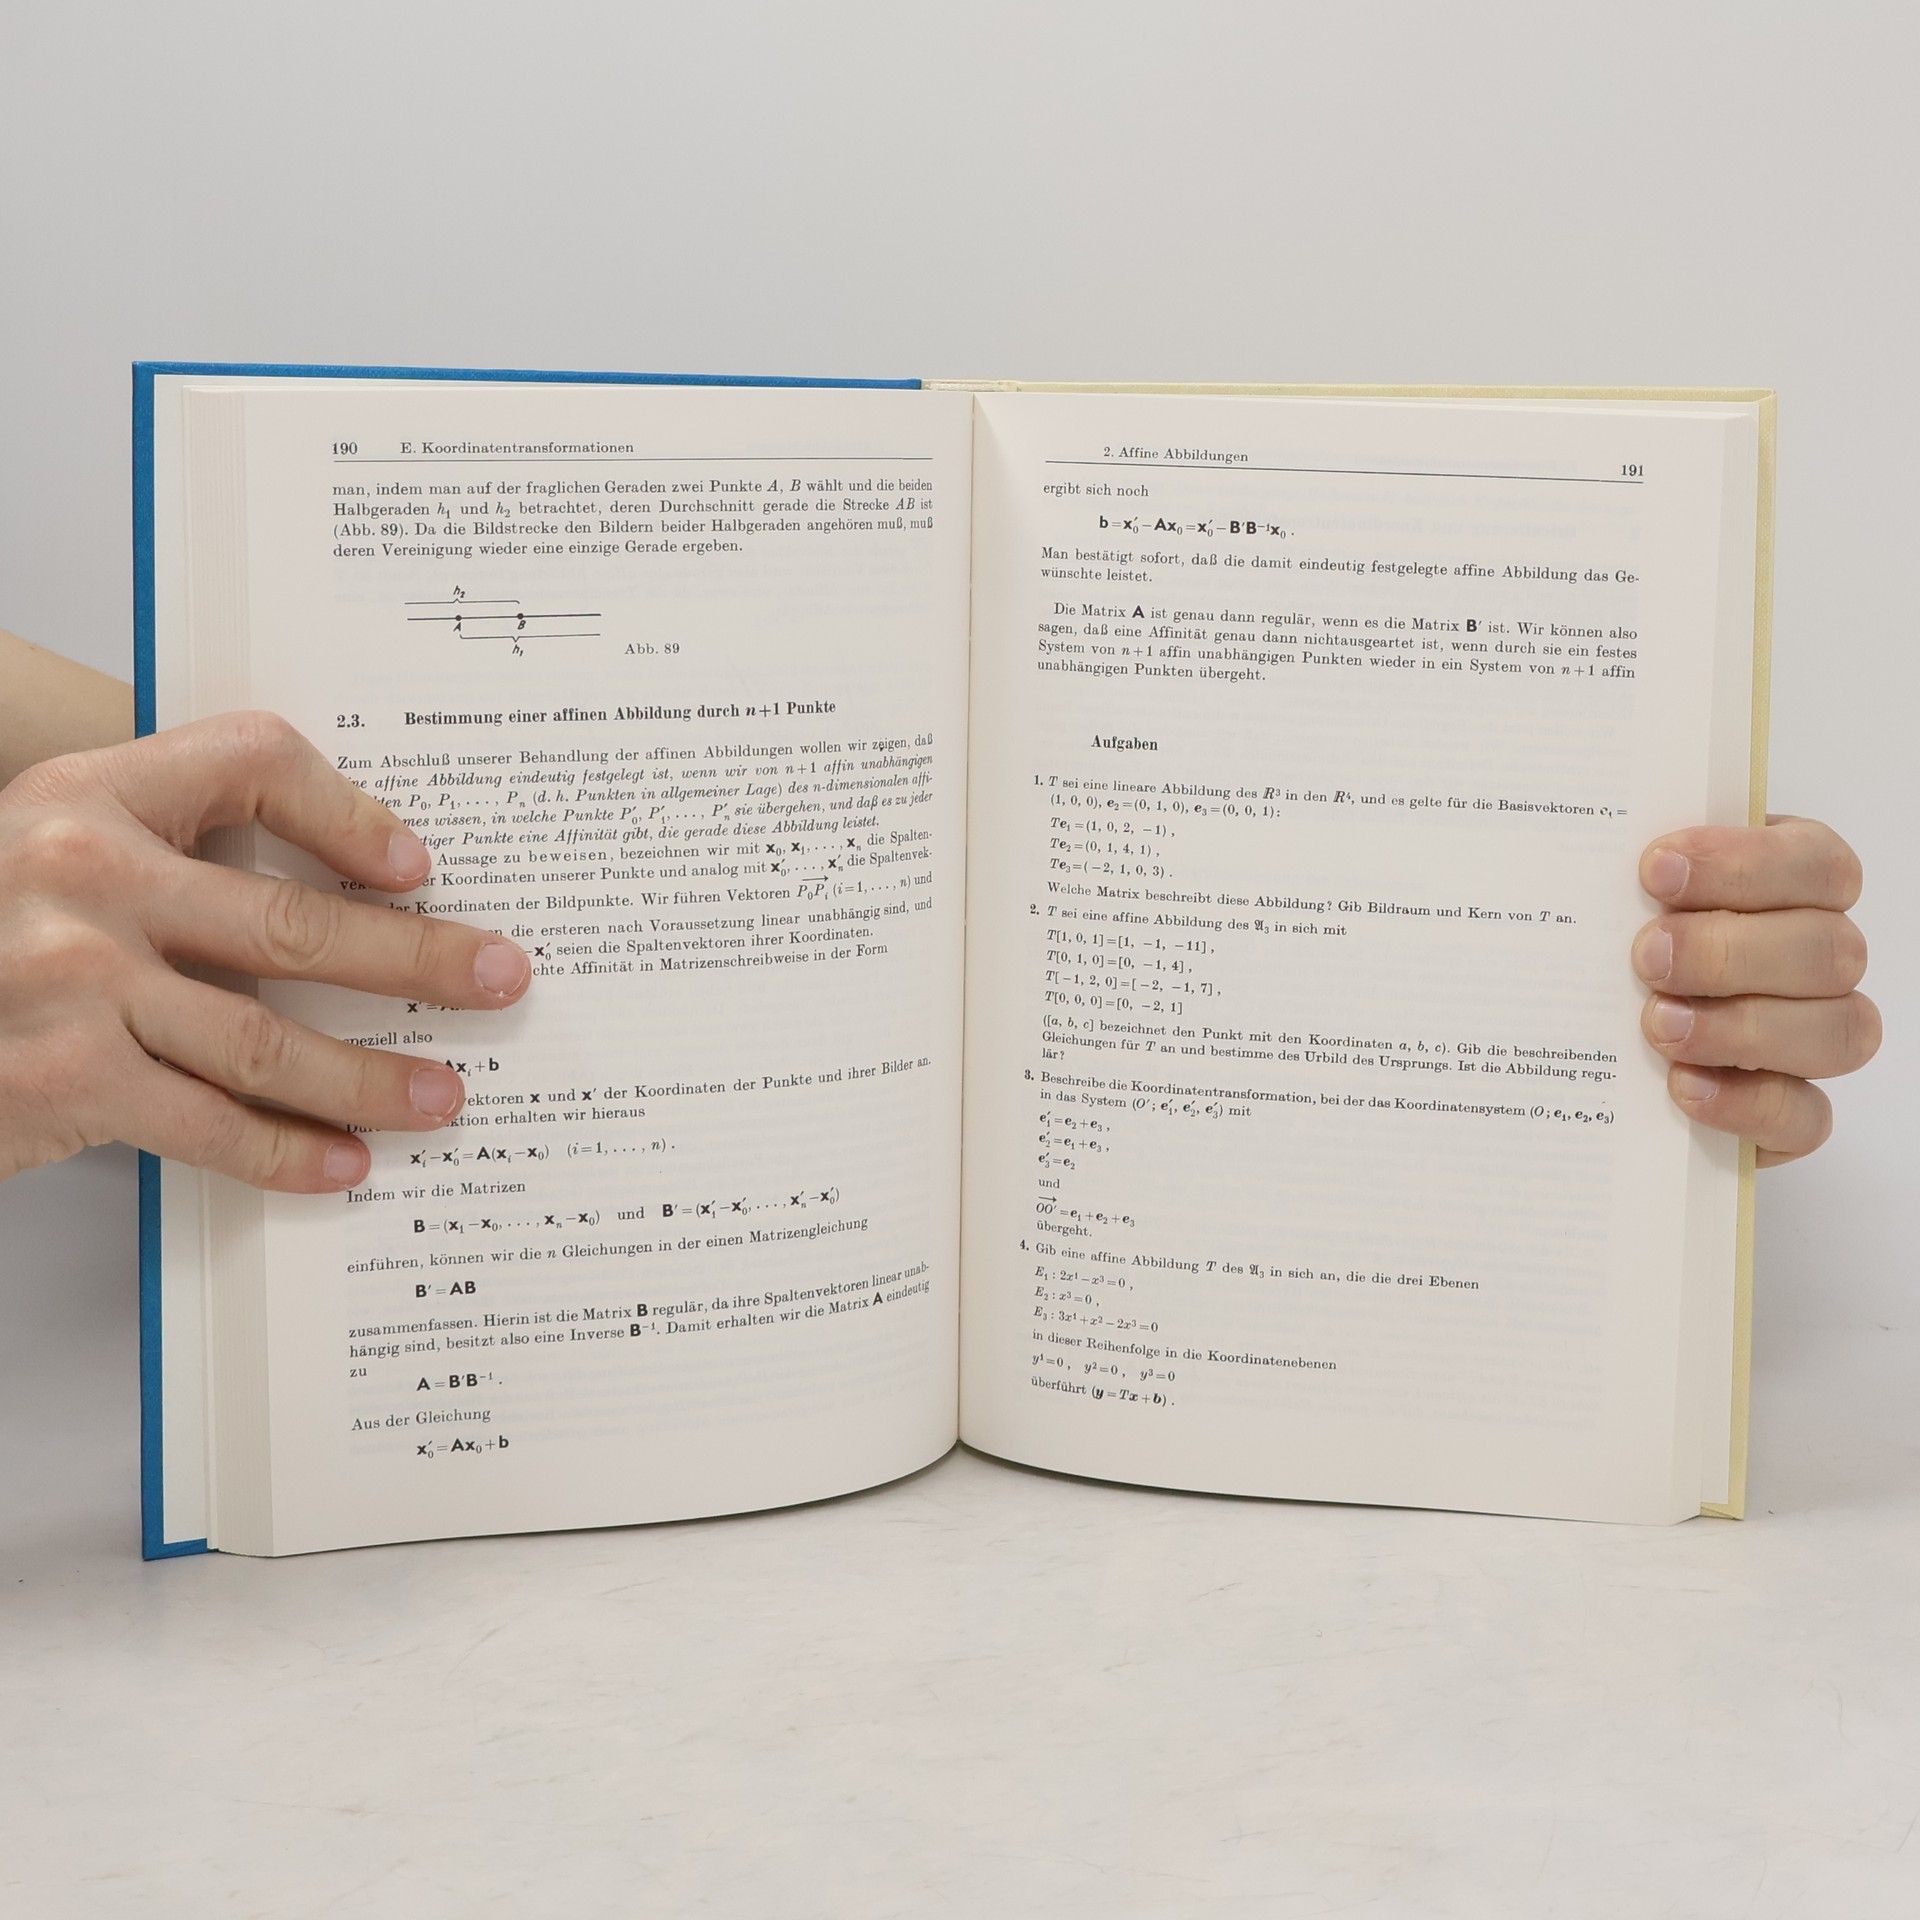 190 E. Koordinatentransformationen
man, indem man auf der fraglichen Geraden zwei Punkte A, B wählt und die beiden
Halbgeraden h₁ und h₂ betrachtet, deren Durchschnitt gerade die Strecke AB ist
(Abb. 89). Da die Bildstrecke den Bildern beider Halbgeraden angehören muß, muß
deren Vereinigung wieder eine einzige Gerade ergeben.
h₂
A B
h₁
Abb. 89
2.3. Bestimmung einer affinen Abbildung durch n+1 Punkte
Zum Abschluß unserer Behandlung der affinen Abbildungen wollen wir zeigen, daß
affine Abbildung eindeutig festgelegt ist, wenn wir von n+1 affin unabhängigen
P₀, P₁, . . . , Pₙ (d. h. Punkten in allgemeiner Lage) des n-dimensionalen affi-
wissen, in welche Punkte P₀′, P₁′, . . . , Pₙ′ sie übergehen, und daß es zu jeder
Punkte eine Affinität gibt, die gerade diese Abbildung leistet.
Aussage zu beweisen, bezeichnen wir mit x₀, x₁, . . . , xₙ die Spalten-
Koordinaten unserer Punkte und analog mit x₀′, . . . , xₙ′ die Spaltenvek-
Koordinaten der Bildpunkte. Wir führen Vektoren P₀Pᵢ (i=1, . . . , n) und
die ersteren nach Voraussetzung linear unabhängig sind, und
−x₀′ seien die Spaltenvektoren ihrer Koordinaten.
Affinität in Matrizenschreibweise in der Form
x′=
speziell also
Axᵢ+b
x und x′ der Koordinaten der Punkte und ihrer Bilder an.
erhalten wir hieraus
xᵢ′−x₀′=A(xᵢ−x₀) (i=1, . . . , n) .
Indem wir die Matrizen
B=(x₁−x₀, . . . , xₙ−x₀) und B′=(x₁′−x₀′, . . . , xₙ′−x₀′)
einführen, können wir die n Gleichungen in der einen Matrizengleichung
B′=AB
zusammenfassen. Hierin ist die Matrix B regulär, da ihre Spaltenvektoren linear unab-
hängig sind, besitzt also eine Inverse B⁻¹. Damit erhalten wir die Matrix A eindeutig
zu
A=B′B⁻¹ .
Aus der Gleichung
x₀′=Ax₀+b
2. Affine Abbildungen 191
ergibt sich noch
b=x₀′−Ax₀=x₀′−B′B⁻¹x₀ .
Man bestätigt sofort, daß die damit eindeutig festgelegte affine Abbildung das Ge-
wünschte leistet.
Die Matrix A ist genau dann regulär, wenn es die Matrix B′ ist. Wir können also
sagen, daß eine Affinität genau dann nichtausgeartet ist, wenn durch sie ein festes
System von n+1 affin unabhängigen Punkten wieder in ein System von n+1 affin
unabhängigen Punkten übergeht.
Aufgaben
1. T sei eine lineare Abbildung des R³ in den R⁴, und es gelte für die Basisvektoren e₁=
(1, 0, 0), e₂=(0, 1, 0), e₃=(0, 0, 1):
Te₁=(1, 0, 2, −1) ,
Te₂=(0, 1, 4, 1) ,
Te₃=(−2, 1, 0, 3) .
Welche Matrix beschreibt diese Abbildung? Gib Bildraum und Kern von T an.
2. T sei eine affine Abbildung des 𝔄₃ in sich mit
T[1, 0, 1]=[1, −1, −11] ,
T[0, 1, 0]=[0, −1, 4] ,
T[−1, 2, 0]=[−2, −1, 7] ,
T[0, 0, 0]=[0, −2, 1]
([a, b, c] bezeichnet den Punkt mit den Koordinaten a, b, c). Gib die beschreibenden
Gleichungen für T an und bestimme des Urbild des Ursprungs. Ist die Abbildung regu-
lär?
3. Beschreibe die Koordinatentransformation, bei der das Koordinatensystem (O; e₁, e₂, e₃)
in das System (O′; e₁′, e₂′, e₃′) mit
e₁′=e₂+e₃ ,
e₂′=e₁+e₃ ,
e₃′=e₂
und
OO′=e₁+e₂+e₃
übergeht.
4. Gib eine affine Abbildung T des 𝔄₃ in sich an, die die drei Ebenen
E₁: 2x¹−x³=0 ,
E₂: x³=0 ,
E₃: 3x¹+x²−2x³=0
in dieser Reihenfolge in die Koordinatenebenen
y¹=0 , y²=0 , y³=0
überführt (y=Tx+b) .